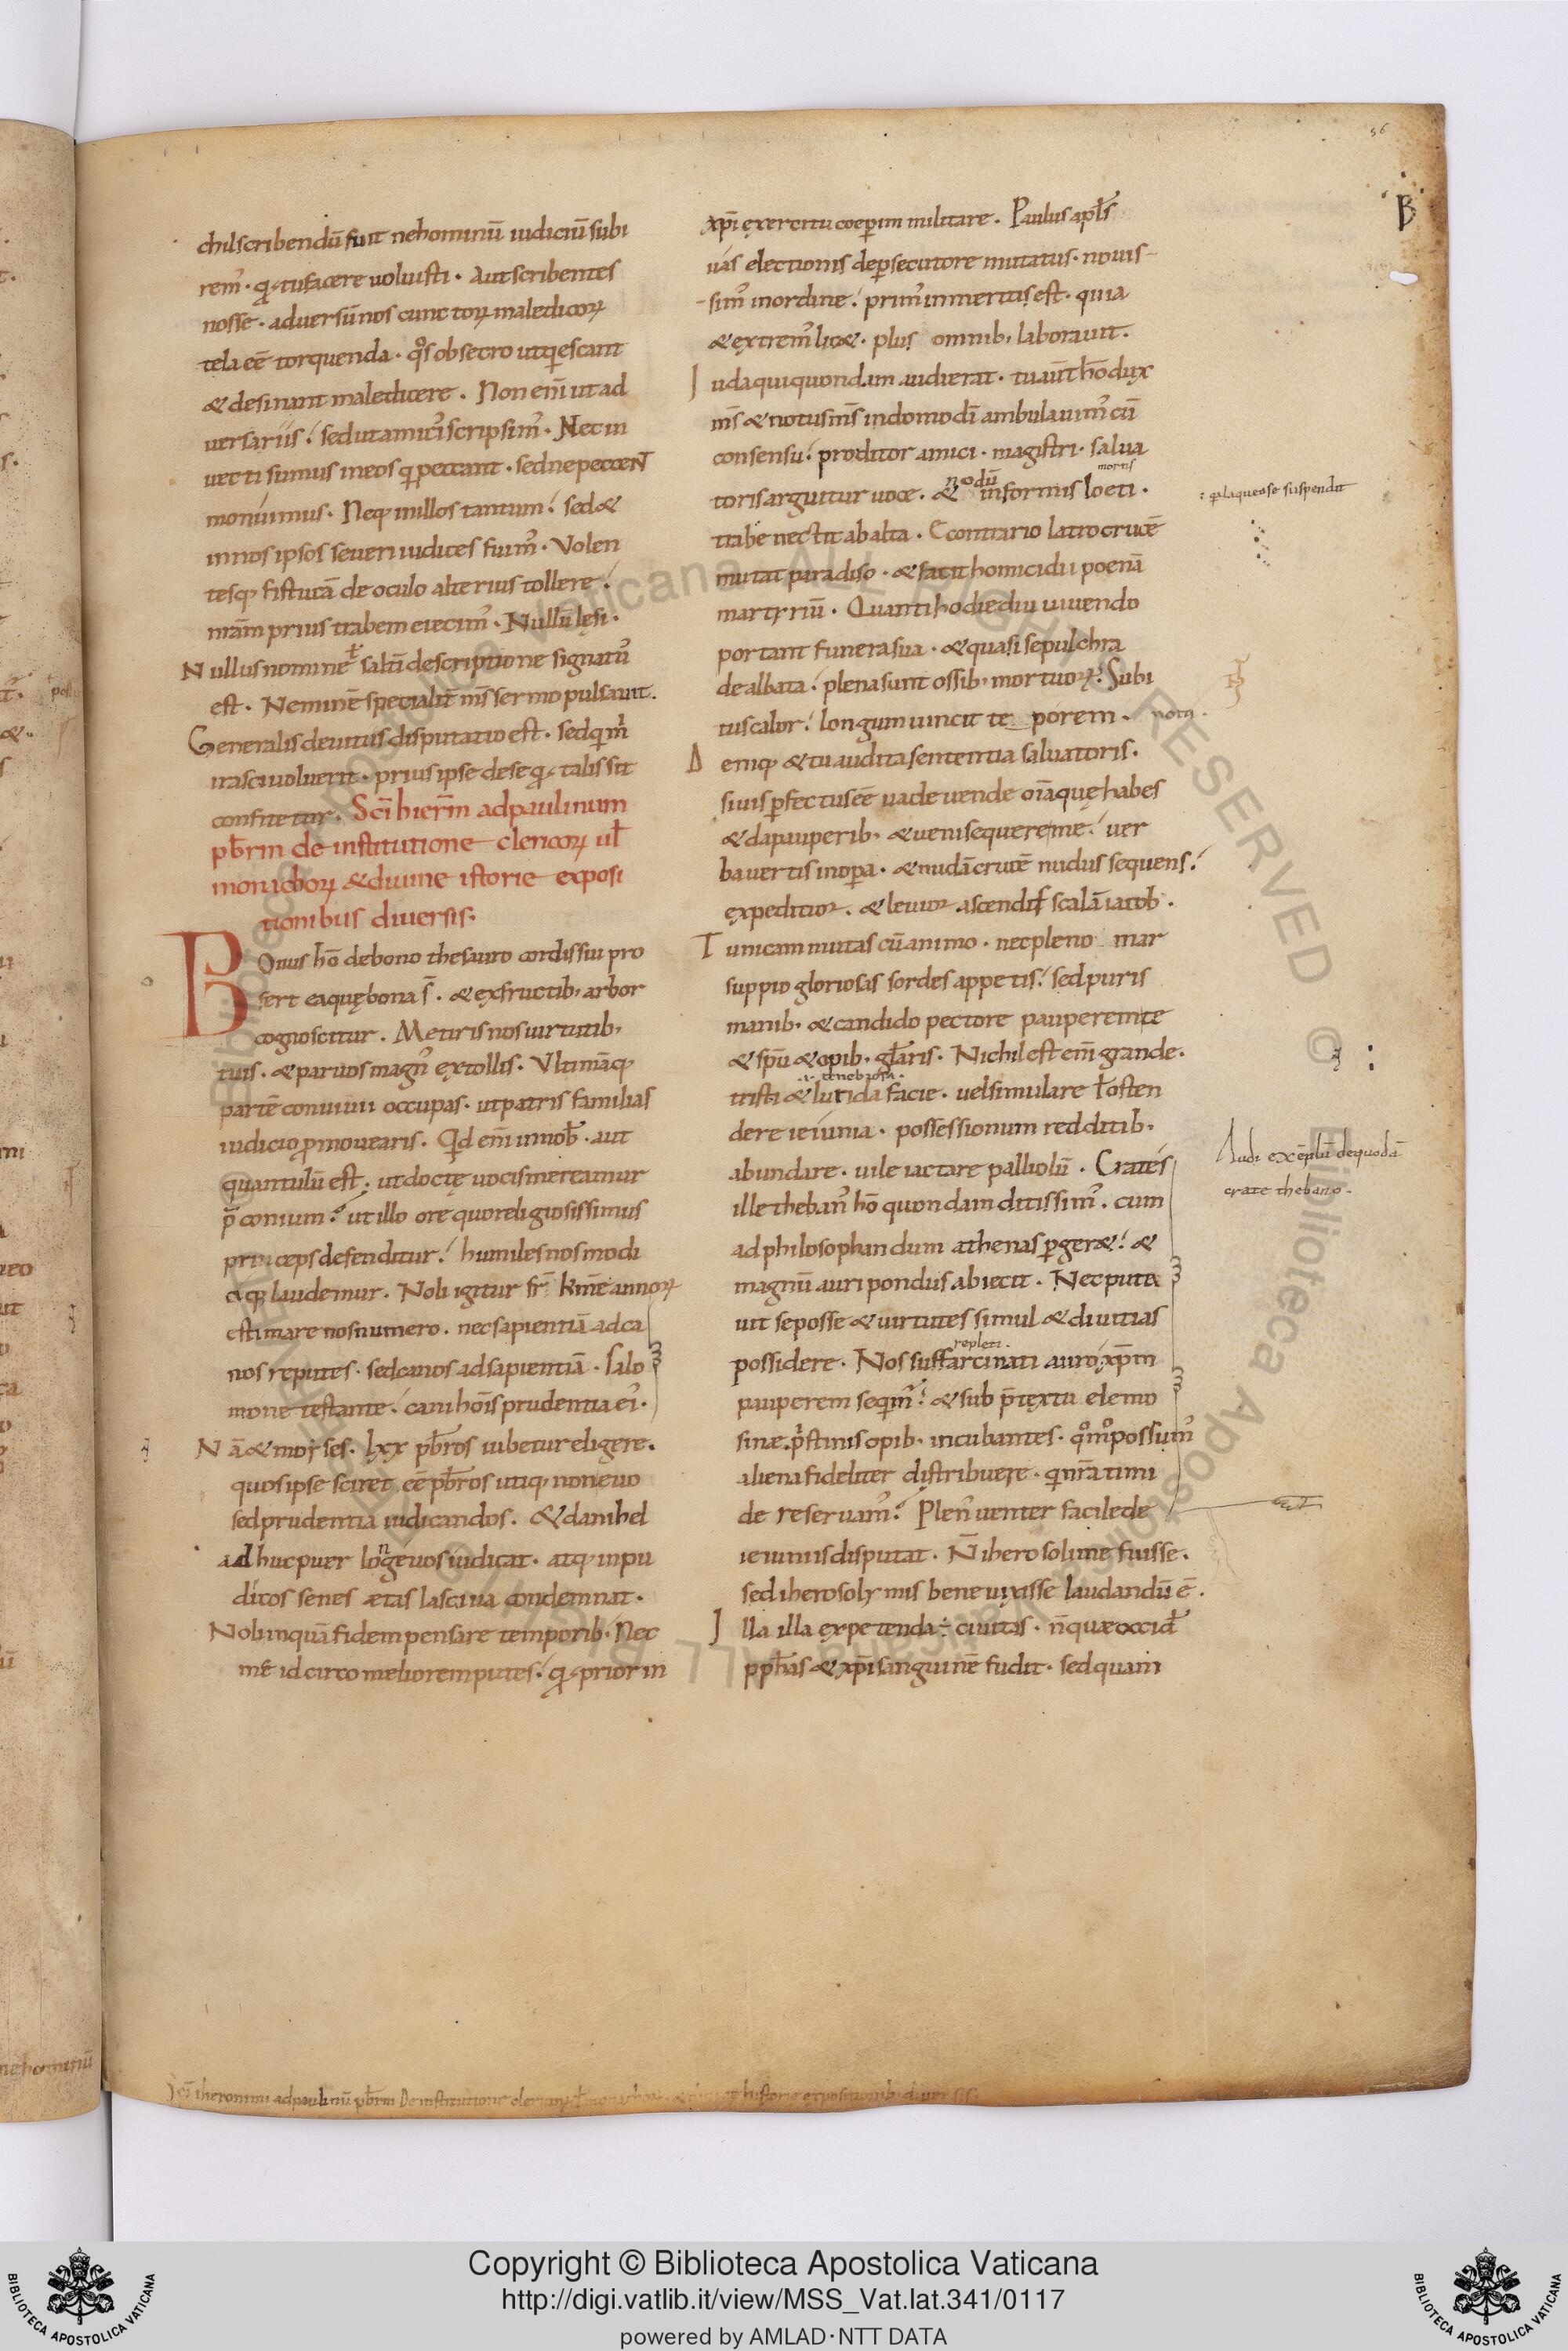 56
B
chil scribendū fuit ne hominū iudiciū subi
rem᷒. q̨ tu facere uoluisti. Aut scribentes
nosse. adversū nos cunctorꝝ maledicorꝝ
tela eē torquenda. q̊s obsecro ut qͥescant
& desinant maledicere. Non eni̅ ut ad
versariis; sed ut amici᷒ scripsim᷒. Nec in
uecti sumus in eos qͥ peccant. sed ne peccent
monuimus. Neq; in illos tantum; sed &
in nos ipsos seueri iudices fuim᷒. Volen
tesq; fistucā de oculo alterius tollere;
nrā̅m prius trabem eiecim᷒. Nullū lęsi.
Nullus nomine ł saltī descriptione signat᷒
est. Neminē specialit̅ mͥs sermo pulsauit.
Generalis de uitiis disputatio est. sed qͥ m
irasci uoluerit. prius ipse de se q̨ talis sit
confitetur. Sci̅ hierm̅ ad paulinum
pb̅rm de institutione clericorꝝ ul̅
monachorꝝ & diuine istorie exposi
tionibus diuersis.
Bonus hō de bono thesauro cordis sui pro
fert ea quę bona s̅. & ex fructib; arbor
cognoscitur. Metiris nos uirtutib;
tuis. & paruos magn᷒ extollis. Vltimāq;
partē conuiuii occupas. ut patris familias
iudicio ꝓmouearis. Qͥd eni̅ in nob̅. aut
quantulū est. ut doctę uocis mereamur
p̅conium; ut illo ore quo religiosissimus
princeps defenditur; humiles nos modi
ciq; laudemur. Noli igitur fr̅ km̅e annorꝝ
estimare nos numero. nec sapientiā ad ca
nos reputes. sed canos ad sapientiā. salo
mone testante; cani hoīs prudentia ei᷒.
Nā & moyses. lxx pb̅ros iubetur eligere.
quos ipse sciret eē pb̅ros utiq; non ęuo
sed prudentia iudicandos. & danihel
adhuc puer longeuos iudicat. atq; inpu
dicos senes ętas lasciua condemnat.
Noli inquā fidem pensare temporib; Nec
me idcirco meliorem putes; q̨ prior in
xp̅i exercitu coeperim militare. Paulus apl̅s
uas electionis de ꝑsecutore mutatus. nouis-
-sim᷒ in ordine; prim᷒ in mertis est. quia
& extrem᷒ lic&. plus omnib; laborauit.
Iuda qui quondam audierat. tu aut̅ hō dux
m̅s & notus m̅s in domo dī ambulauim᷒ cū
consensu; proditor amici. magistri. salua
mortis
toris arguitur uoce. & nodū informis loeti.
: ꝙ laqueo se suspendit
trabe nectit ab alta. E contrario latro crucē
mutat paradiso. & facit homicidii poenā
martyriū. Quanti hodie diu uiuendo
portant funera sua. & quasi sepulchra
dealbata; plena sunt ossib; mortuorꝝ. Subi
tus calor; longum uincit teporem. nota.
Deniq; & tu audita sententia saluatoris.
si uis ꝑfectus eē uade uende oīa quę habes
& da pauperib; & ueni sequere me; uer
ba uertis in oꝑa. & nudā crucē nudus sequens;
expeditior. & leuior ascendis scalā iacob.
Tunicam mutas cū animo. nec pleno mar
suppio gloriosas sordes appetis; sed puris
manib; & candido pectore pauperem te
& spū & opib; gl̅aris. Nichil est eni̅ grande.
.i. tenebrosa.
tristi & lurida facie. uel simulare ł osten
dere ieiunia. possessionum redditib;
abundare. uile iactare palliolū. Crates
Audi exēplū de quodā
crate thebano.
ille theban᷒ hō quondam ditissim᷒. cum
ad philosophandum athenas ꝑger&; &
magnū auri pondus abiecit. Nec puta
uit se posse & uirtutes simul & diuitias
repleti.
possidere. Nos suffarcinati auro; xp̅m
pauperem seqͥm᷒; & sub p̅textu elemo
sinæ. pͥstinis opib; incubantes. qͦmͦ possum᷒
aliena fideliter distribuere. qͥ nr̅a timi
de reseruam᷒; Plen᷒ uenter facile de
ieiuniis disputat. N̅ iherosolime fuisse.
sed iherosolymis bene uixisse laudandū ē.
Illa illa expetenda ÷ ciuitas. n̅ quæ occid̅
pph̅as & xp̅i sanguinē fudit. sed quam
Sci̅ iheronimi ad paulinū pb̅rm De institutione clericorꝝ ł monachorꝝ. & diuine historie expositionib; diuersis.
Copyright © Biblioteca Apostolica Vaticana
http://digi.vatlib.it/view/MSS_Vat.lat.341/0117
powered by AMLAD·NTT DATA
BIBLIOTECA APOSTOLICA VATICANA
BIBLIOTECA APOSTOLICA VATICANA